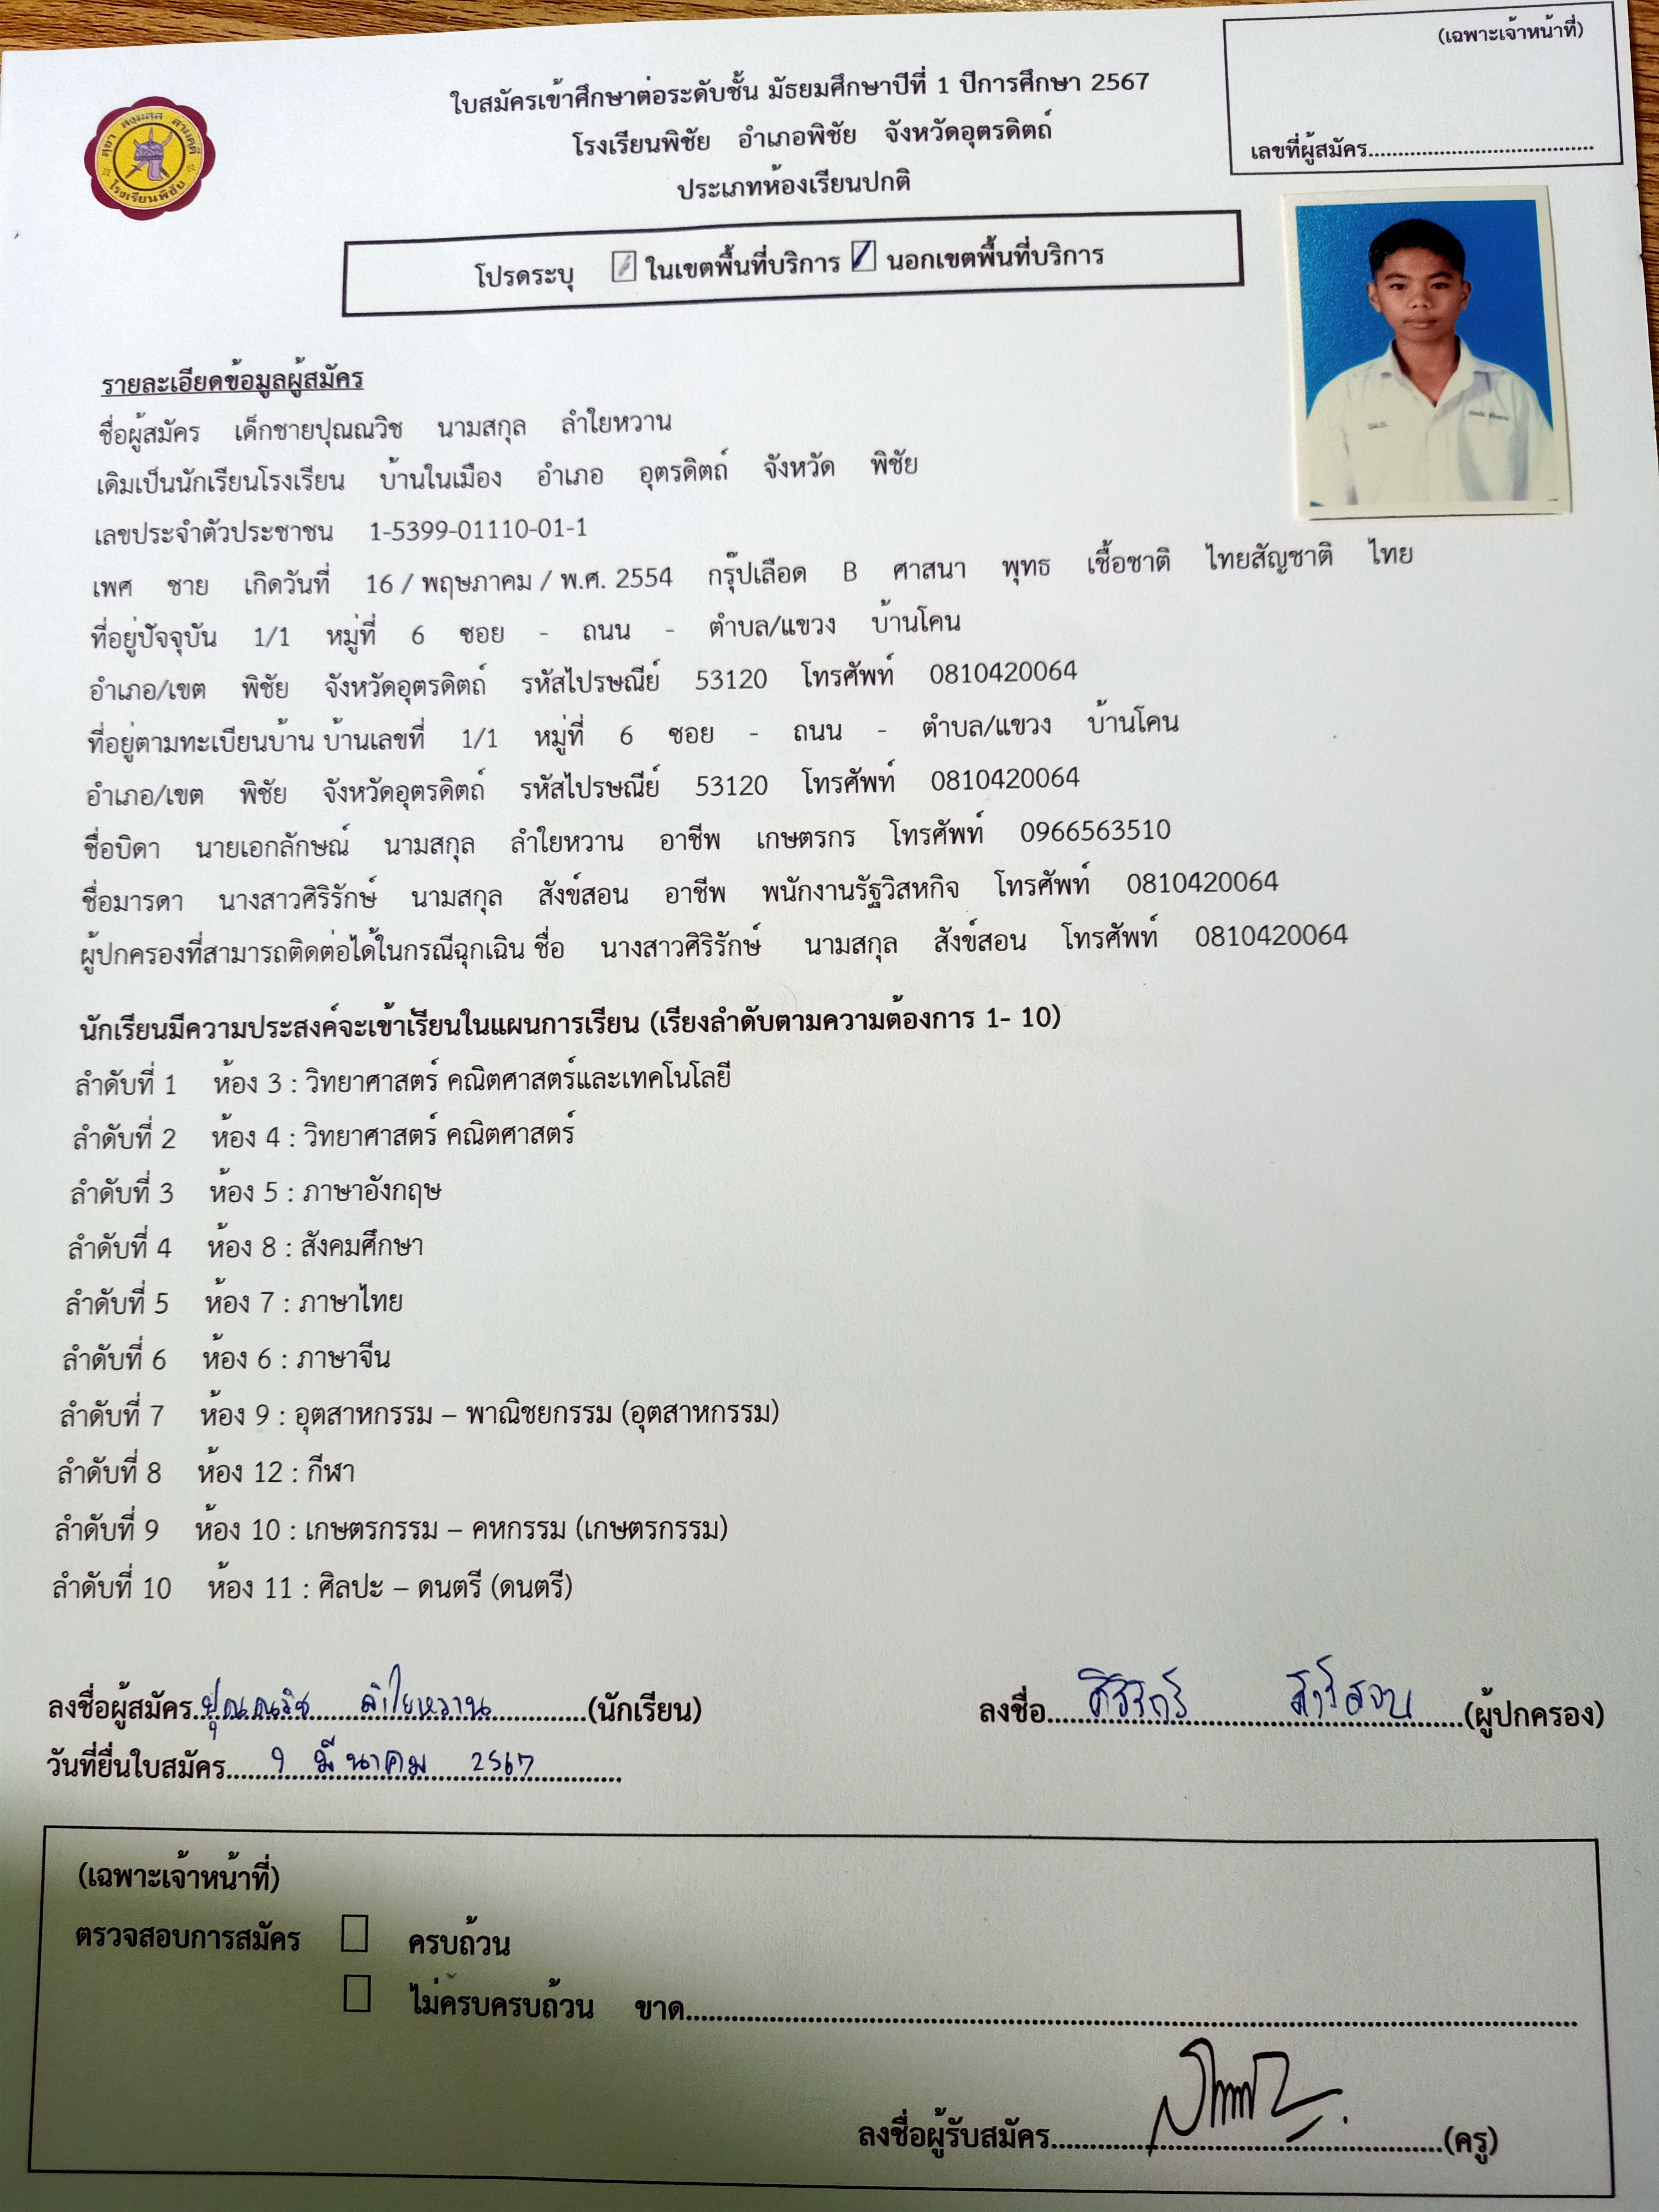 (เฉพาะเจ้าหน้าที่)
เลขที่ผู้สมัคร......................................
ใบสมัครเข้าศึกษาต่อระดับชั้น มัธยมศึกษาปีที่ 1 ปีการศึกษา 2567
โรงเรียนพิชัย อำเภอพิชัย จังหวัดอุตรดิตถ์
ประเภทห้องเรียนปกติ
โรงเรียนพิชัย
โปรดระบุ ในเขตพื้นที่บริการ นอกเขตพื้นที่บริการ
รายละเอียดข้อมูลผู้สมัคร
ชื่อผู้สมัคร เด็กชายปุณณวิช นามสกุล ลำใยหวาน
เดิมเป็นนักเรียนโรงเรียน บ้านในเมือง อำเภอ อุตรดิตถ์ จังหวัด พิชัย
เลขประจำตัวประชาชน 1-5399-01110-01-1
เพศ ชาย เกิดวันที่ 16 / พฤษภาคม / พ.ศ. 2554 กรุ๊ปเลือด B ศาสนา พุทธ เชื้อชาติ ไทยสัญชาติ ไทย
ที่อยู่ปัจจุบัน 1/1 หมู่ที่ 6 ซอย - ถนน - ตำบล/แขวง บ้านโคน
อำเภอ/เขต พิชัย จังหวัดอุตรดิตถ์ รหัสไปรษณีย์ 53120 โทรศัพท์ 0810420064
ที่อยู่ตามทะเบียนบ้าน บ้านเลขที่ 1/1 หมู่ที่ 6 ซอย - ถนน - ตำบล/แขวง บ้านโคน
อำเภอ/เขต พิชัย จังหวัดอุตรดิตถ์ รหัสไปรษณีย์ 53120 โทรศัพท์ 0810420064
ชื่อบิดา นายเอกลักษณ์ นามสกุล ลำใยหวาน อาชีพ เกษตรกร โทรศัพท์ 0966563510
ชื่อมารดา นางสาวศิริรักษ์ นามสกุล สังข์สอน อาชีพ พนักงานรัฐวิสหกิจ โทรศัพท์ 0810420064
ผู้ปกครองที่สามารถติดต่อได้ในกรณีฉุกเฉิน ชื่อ นางสาวศิริรักษ์ นามสกุล สังข์สอน โทรศัพท์ 0810420064
นักเรียนมีความประสงค์จะเข้าเรียนในแผนการเรียน (เรียงลำดับตามความต้องการ 1- 10)
ลำดับที่ 1 ห้อง 3 : วิทยาศาสตร์ คณิตศาสตร์และเทคโนโลยี
ลำดับที่ 2 ห้อง 4 : วิทยาศาสตร์ คณิตศาสตร์
ลำดับที่ 3 ห้อง 5 : ภาษาอังกฤษ
ลำดับที่ 4 ห้อง 8 : สังคมศึกษา
ลำดับที่ 5 ห้อง 7 : ภาษาไทย
ลำดับที่ 6 ห้อง 6 : ภาษาจีน
ลำดับที่ 7 ห้อง 9 : อุตสาหกรรม – พาณิชยกรรม (อุตสาหกรรม)
ลำดับที่ 8 ห้อง 12 : กีฬา
ลำดับที่ 9 ห้อง 10 : เกษตรกรรม – คหกรรม (เกษตรกรรม)
ลำดับที่ 10 ห้อง 11 : ศิลปะ – ดนตรี (ดนตรี)
ลงชื่อผู้สมัคร ปุณณวิช ลำใยหวาน (นักเรียน) ลงชื่อ (ผู้ปกครอง)
วันที่ยื่นใบสมัคร 9 มีนาคม 2567
(เฉพาะเจ้าหน้าที่)
ตรวจสอบการสมัคร ครบถ้วน
ไม่ครบครบถ้วน ขาด......................................
ลงชื่อผู้รับสมัคร (ครู)